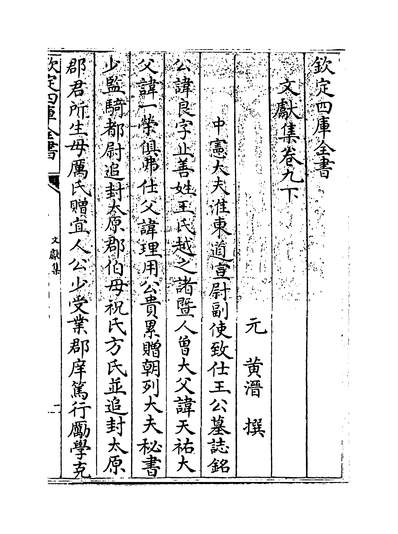 欽定四庫全書
文獻集卷九下
元 黃溍 撰
中憲大夫淮東道宣尉副使致仕王公墓誌銘
公諱良字止善姓王氏越之諸暨人曾大父諱天祐大
父諱一榮俱弗仕父諱理用公貴累贈朝列大夫秘書
少監騎都尉追封太原郡伯母祝氏方氏並追封太原
郡君所生母厲氏贈宜人公少受業郡庠篤行勵學克
欽定四庫全書
文獻集
一